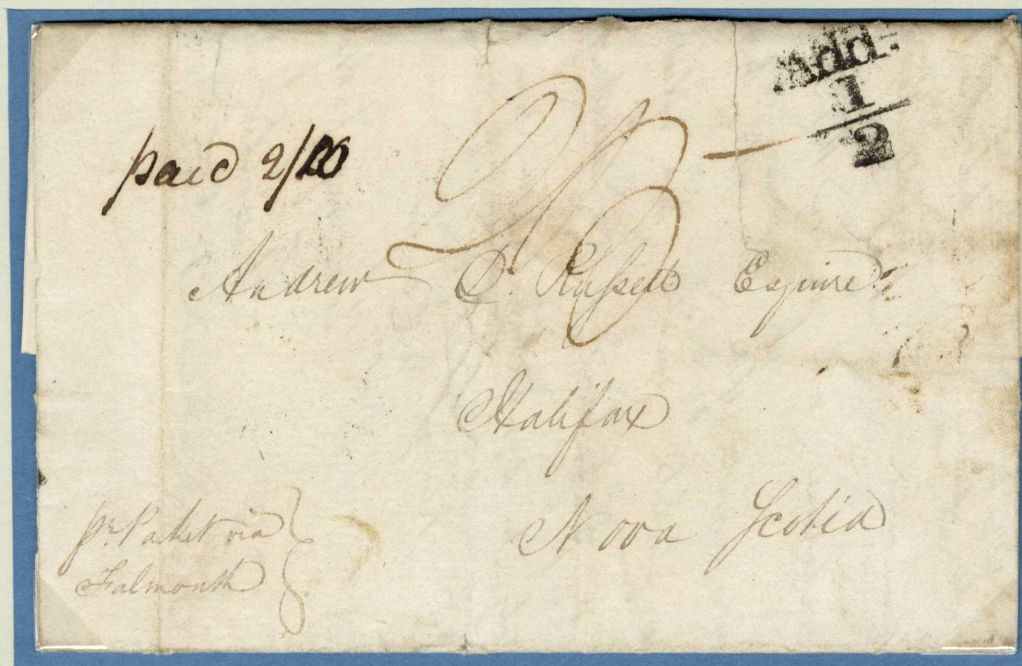 Add:
1
2
paid 2/
Andrew D. Russell Esquire
Halifax
Nova Scotia
pr. Packet via
Falmouth